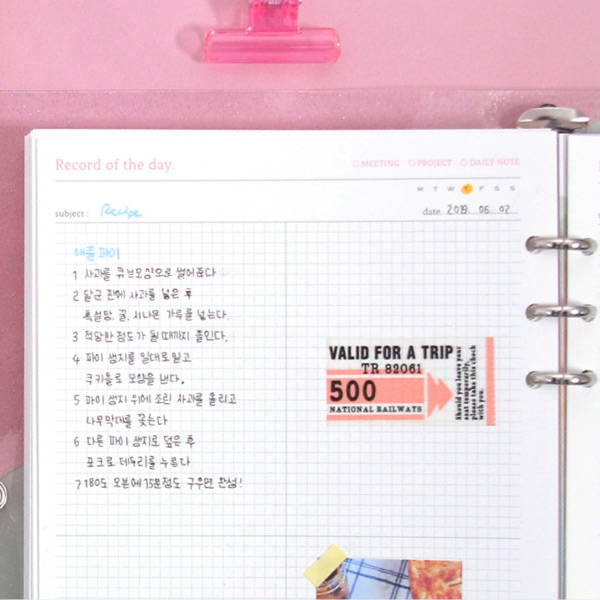 Record of the day.
MEETING PROJECT DAILY NOTE
M T W T F S S
subject : Recipe
date. 2019. 06. 02
애플파이
1 사과를 큐브모양으로 썰어준다
2 달군 팬에 사과를 넣은 후
흑설탕, 꿀, 시나몬 가루를 넣는다.
3 적당한 점도가 될 때까지 졸인다.
4 파이 생지를 밀대로 밀고
쿠키틀로 모양을 낸다.
5 파이 생지 위에 조린 사과를 올리고
나무막대를 꽂는다
6 다른 파이 생지로 덮은 후
포크로 테두리를 누른다
7 180도 오븐에 15분정도 구우면 완성!
VALID FOR A TRIP
TR 82061
500
NATIONAL RAILWAYS
Should you leave your
seat temporarily,
please take this check
with you.